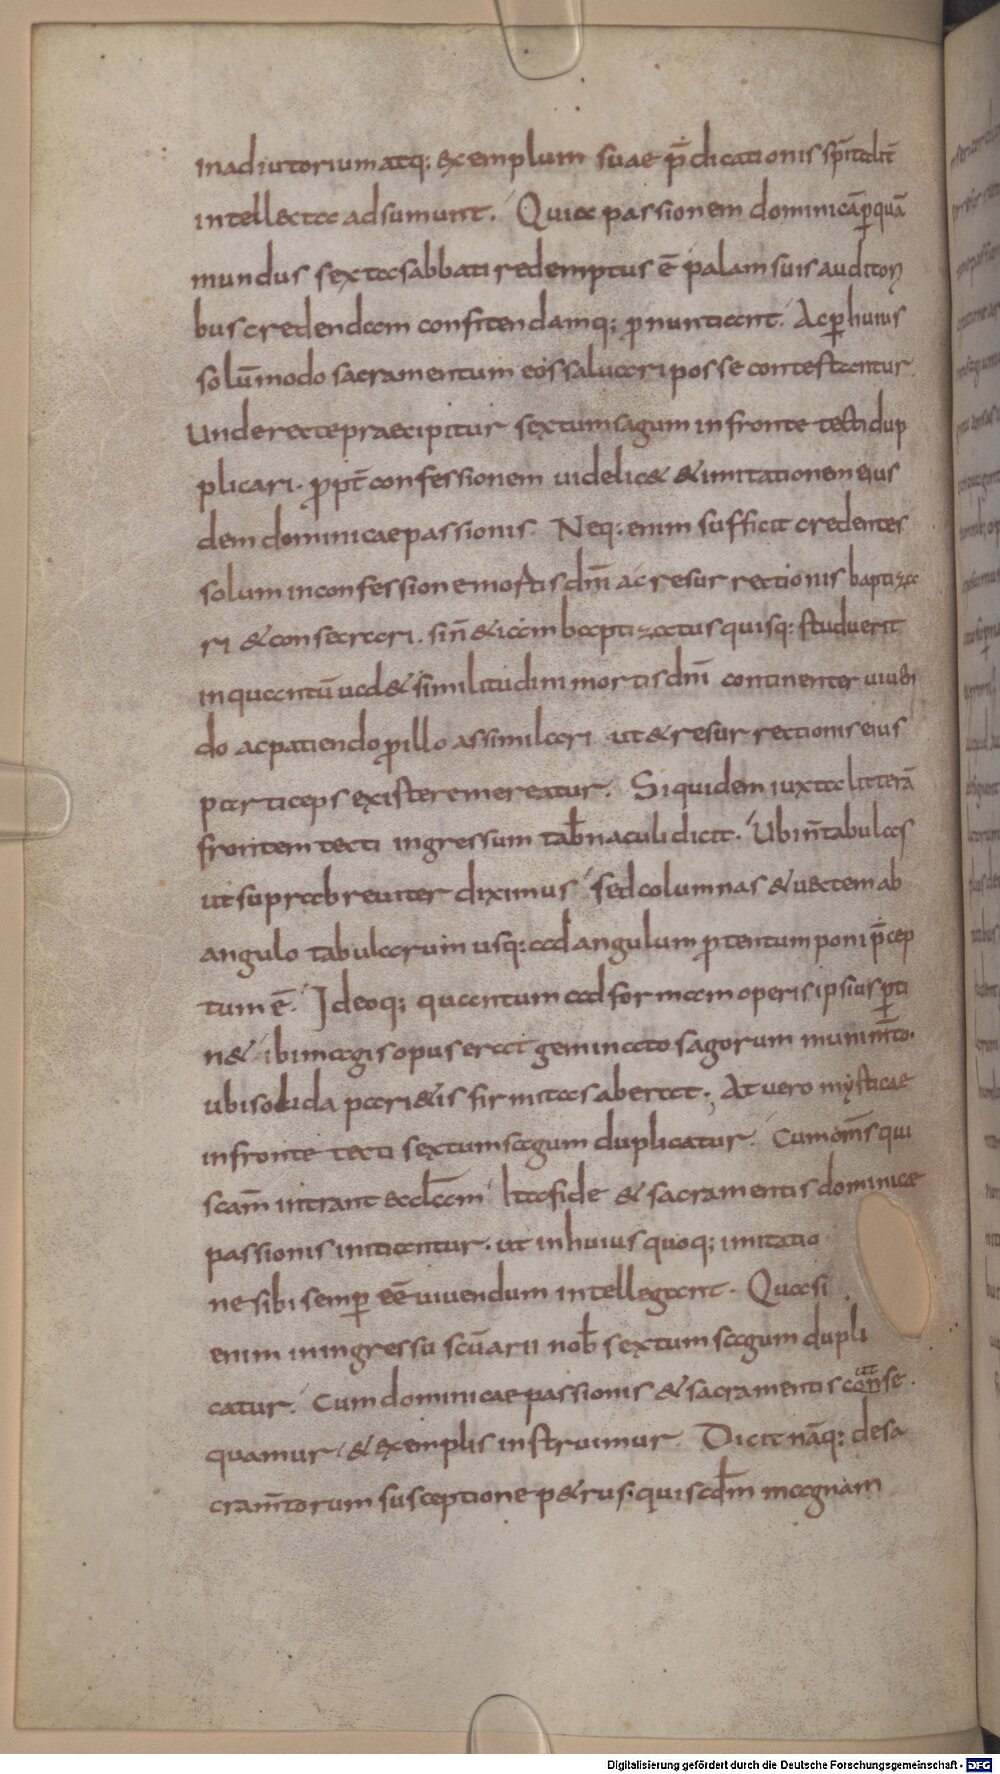 inadiutorium atq: exemplum suae p̄dicationis sp̄italit̄
intellecta adsumunt. Quia passionem dominicā ꝑquā
mundus sexta sabbati redemptus ē palam suis auditori
bus credendam confitendamq; ꝓnuntiant. Ac ꝑ huius
solūmodo sacramentum eos saluari posse contestantur
Unde recte praecipitur sextum sagum in fronte tecti dup
plicari. ꝓpt̄ confessionem uidelic& & imitationem eius
dem dominicae passionis. Neq: enim sufficit credentes
solum in confessione mortis dn̄i ac resurrectionis baptiza
ri & consecrari. sin̄ & iam baptizatus quisq: studuerit
inquantū ual& similitudini mortis dn̄i continenter uiuen
do ac patiendo ꝓ illo assimilari ut & resurrectionis eius
particeps existere mereatur. Siquidem iuxta litterā
frontem tecti ingressum tab̄naculi dicit. Ubi n̄ tabulas
ut supra breuiter diximus sed columnas & uectem ab
angulo tabularum usq: ad angulum ꝓtentum poni p̄cep
tum ē. Ideoq; quantum ad formam operis ipsius ꝑti
n& ibi magis opus erat geminato sagorum munim̄to.
ubi solida pari&is firmitas aberat. At uero mysticae
in fronte tecti sextum sagum duplicatur. Cum om̄s qui
scam̄ intrant eccl̄am ita fide & sacramentis dominicae
passionis initiantur. ut in huius quoq; imitatio
ne sibi semꝑ eē uiuendum intellegant. Quasi
enim in ingressu scūarii nob̄ sextum sagum dupli
catur. Cum dominicae passionis & sacramentis conse
quamur & exemplis instruimur. Dicit nāq: de sa
cram̄torum susceptione p&rus. qui scd̄m magnam